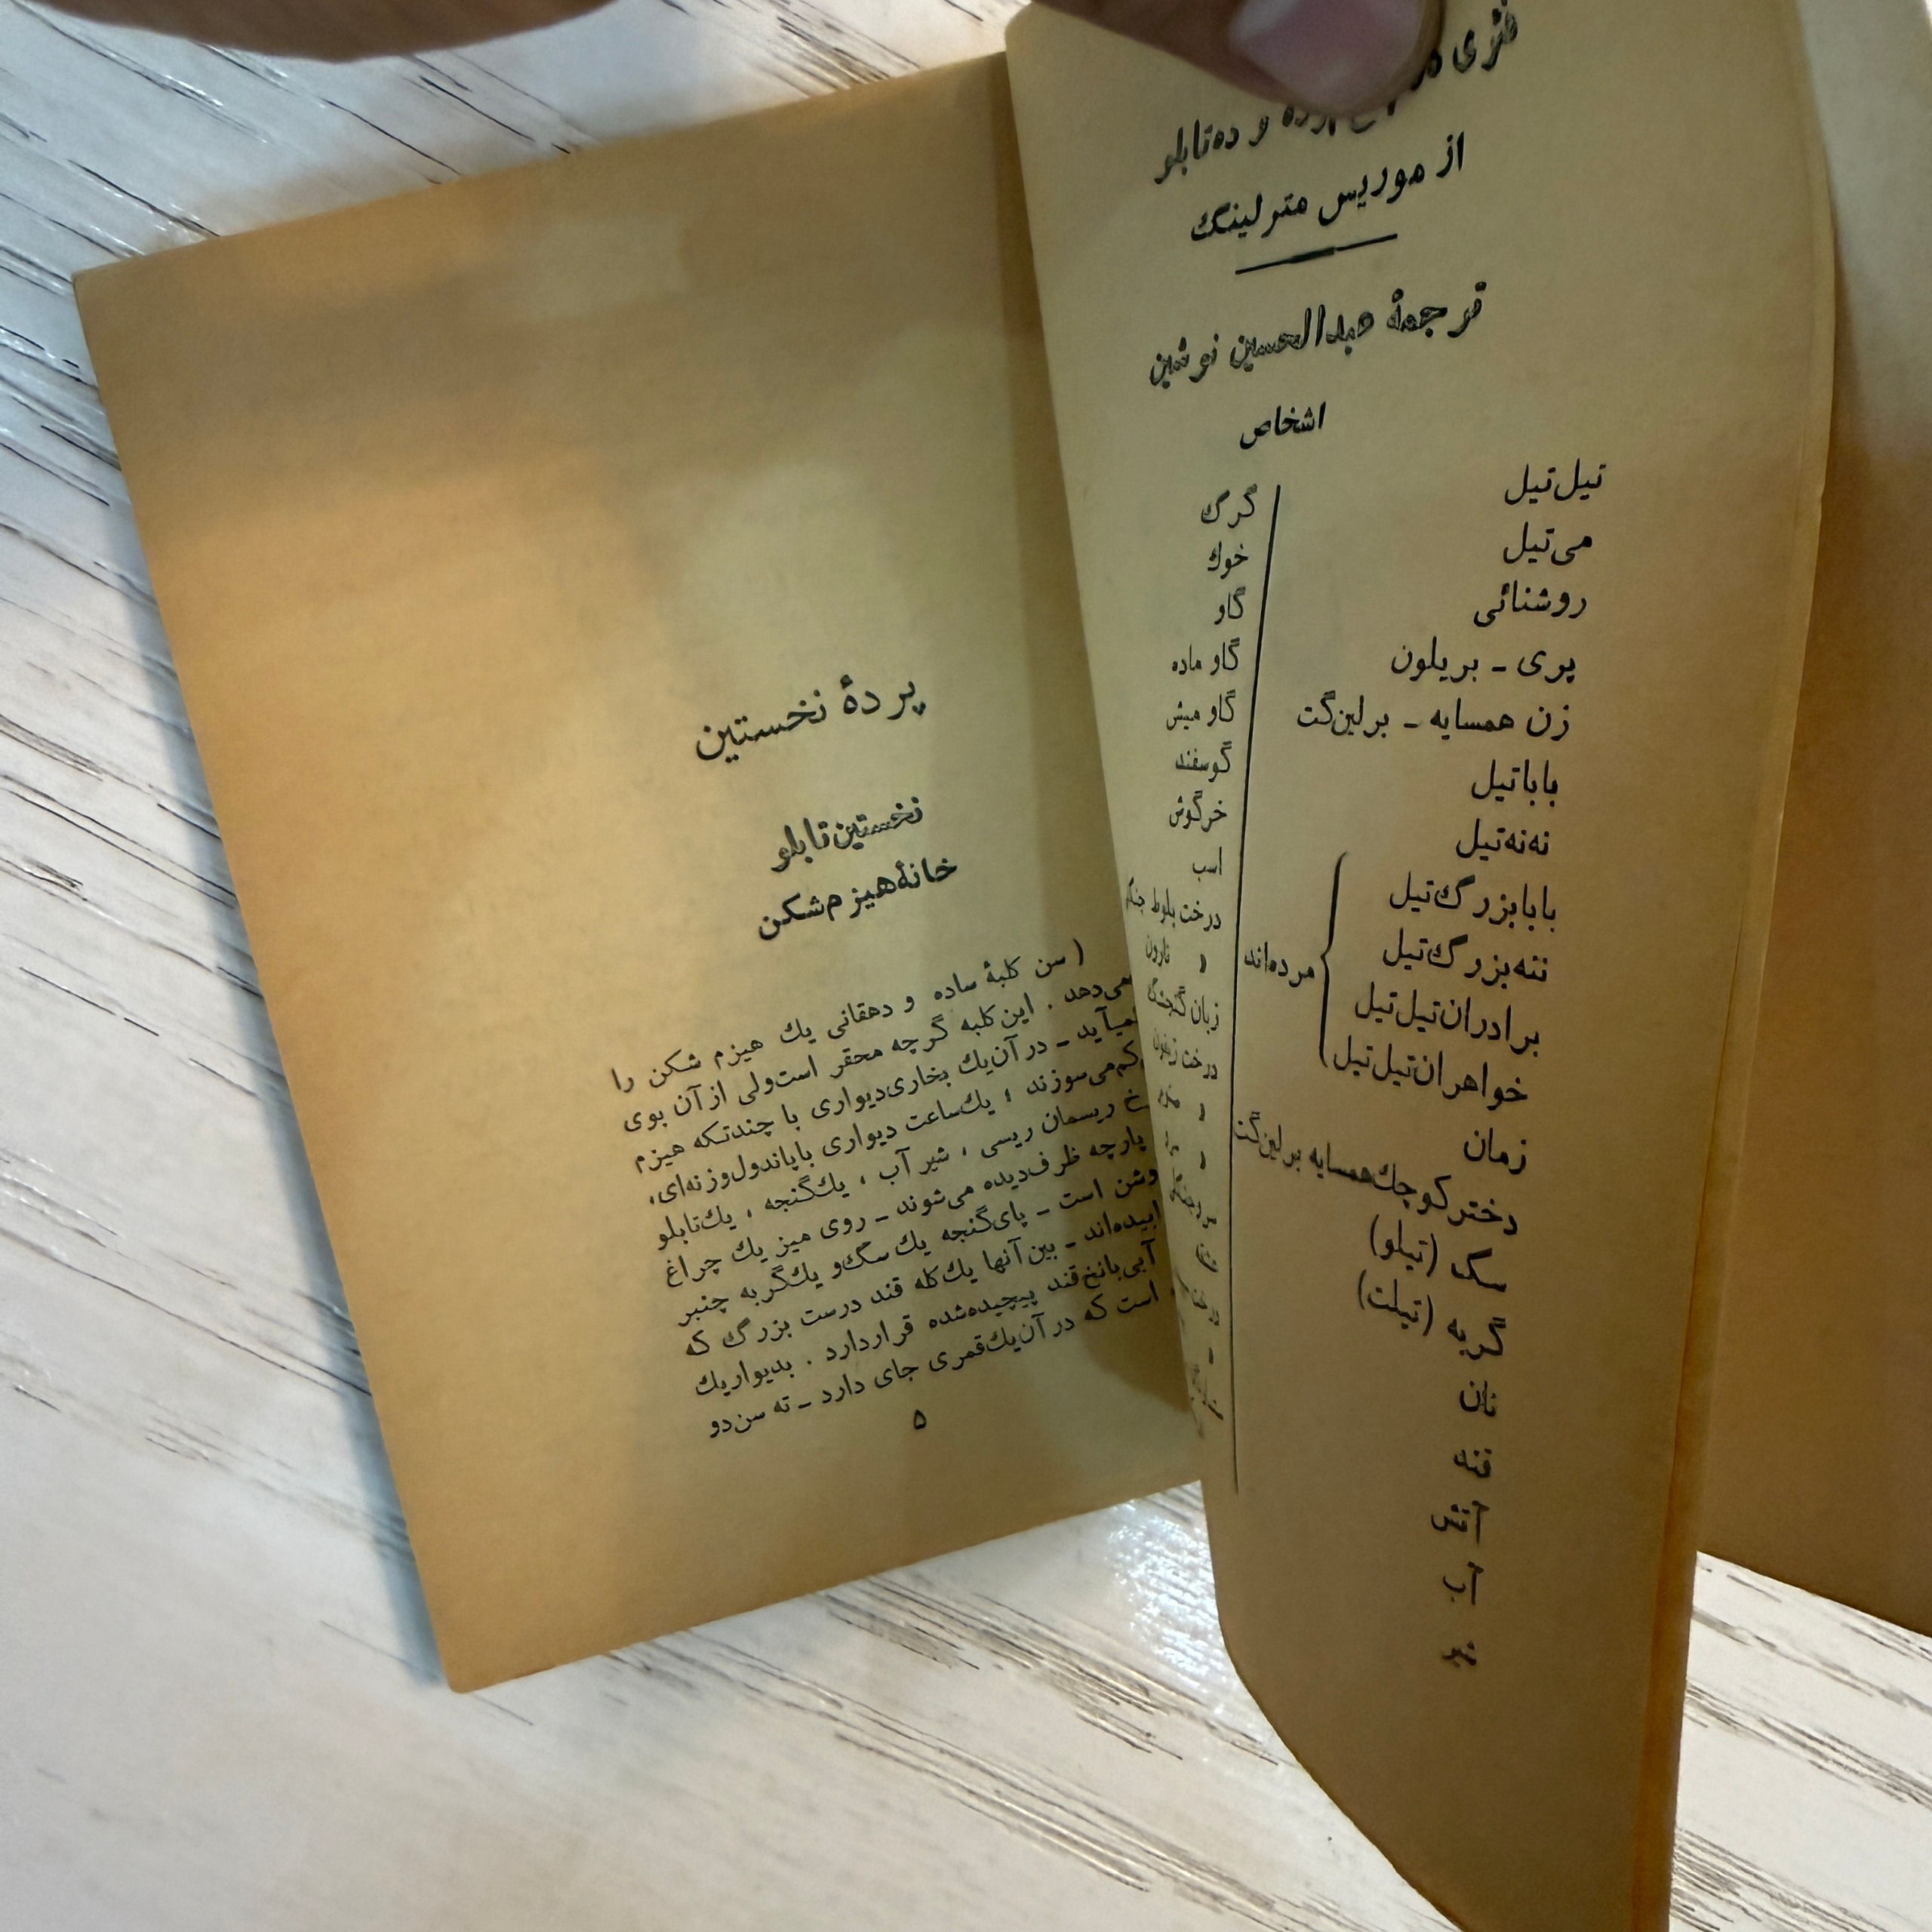 و ده تابلو
از موریس مترلینگ
ترجمهٔ عبدالحسین نوشین
اشخاص
تیل‌تیل
می‌تیل
روشنائی
پری - بریلون
زن همسایه - برلین‌گت
باباتیل
ننه‌تیل
بابابزرگ‌تیل
ننه‌بزرگ‌تیل
برادران‌تیل‌تیل
خواهران‌تیل‌تیل
مرده‌اند
زمان
دخترکوچك‌همسایه برلین‌گت
سگ (تیلو)
گربه (تیلت)
نان
قند
آتش
آب
شیر
گرگ
خوك
گاو
گاو ماده
گاو میش
گوسفند
خرگوش
اسب
درخت بلوط
« نارون
زبان گنجشك
درخت زیزفون
پردهٔ نخستین
نخستین‌تابلو
خانهٔ‌هیزم‌شکن
(سن کلبهٔ ساده و دهقانی یك هیزم شکن را
می‌دهد . این کلبه گرچه محقر است‌ولی از آن بوی
نمیآید - در آن‌یك بخاری‌دیواری با چندتکه هیزم
می‌سوزند ؛ یك‌ساعت دیواری باپاندول‌وزنه‌ای،
ریسمان ریسی ، شیر آب ، یك‌گنجه ، یك‌تابلو
پارچه ظرف‌دیده می‌شوند - روی میز یك چراغ
است - پای‌گنجه یك سگ‌و یك‌گربه چنبر
بین آنها یك کله قند درست بزرگ که
آبی‌بانخ‌قند پیچیده‌شده قراردارد . بدیواریك
است که در آن‌یك‌قمری جای دارد - ته سن‌دو
۵